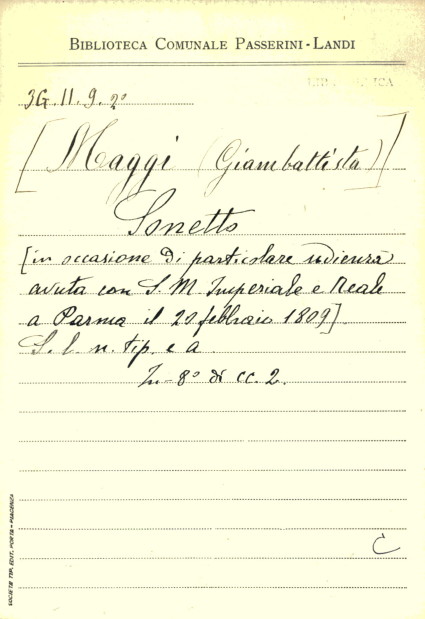 BIBLIOTECA COMUNALE PASSERINI-LANDI
3G.11.9.2º
[Maggi (Giambattista)]
Sonetto
[in occasione di particolare udienza
avuta con S. M. Imperiale e Reale
a Parma il 20 febbraio 1809]
S. l. n. tip. e a.
In-8º di cc. 2.
C
SOCIETÀ TIP. EDIT. PORTA - PIACENZA